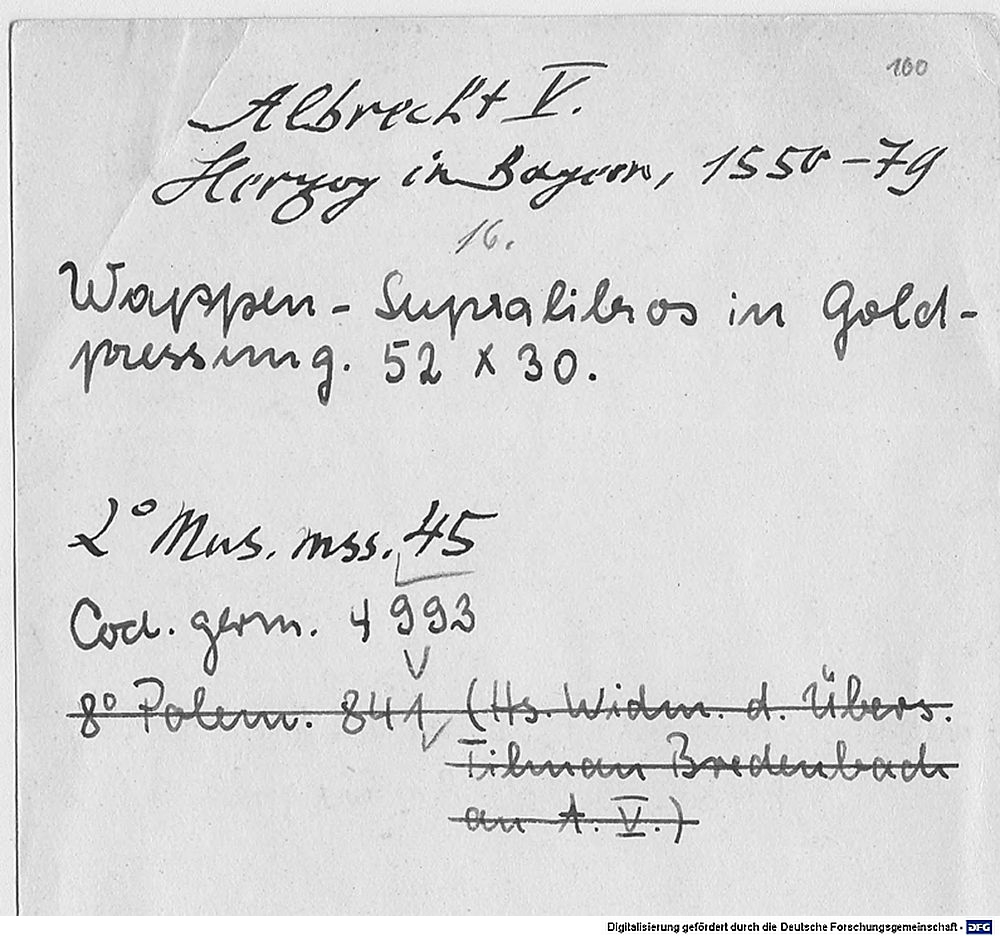 100
Albrecht V.
Herzog in Bayern, 1550-79
16.
Wappen-Supralibros in Gold-
pressung. 52 x 30.
2° Mus. mss. 45
Cod. germ. 4993
8° Polem. 841 (Hs. Widm. d. Übers.
Tilman Bredenbach
an A. V.)
Digitalisierung gefördert durch die Deutsche Forschungsgemeinschaft - DFG